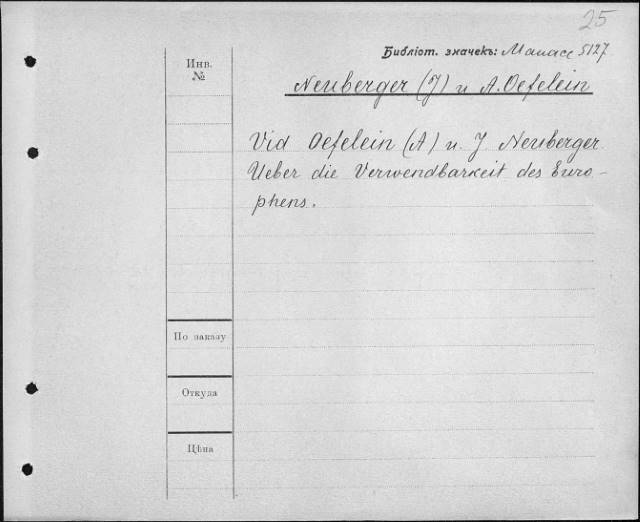 25
Библіот. значекъ: Манасе 5127
Инв.
№
Neuberger (J) и A. Oefelein
Vid Oefelein (A) u. J. Neuberger
Ueber die Verwendbarkeit des Euro-
phens.
По заказу
Откуда
Цѣна